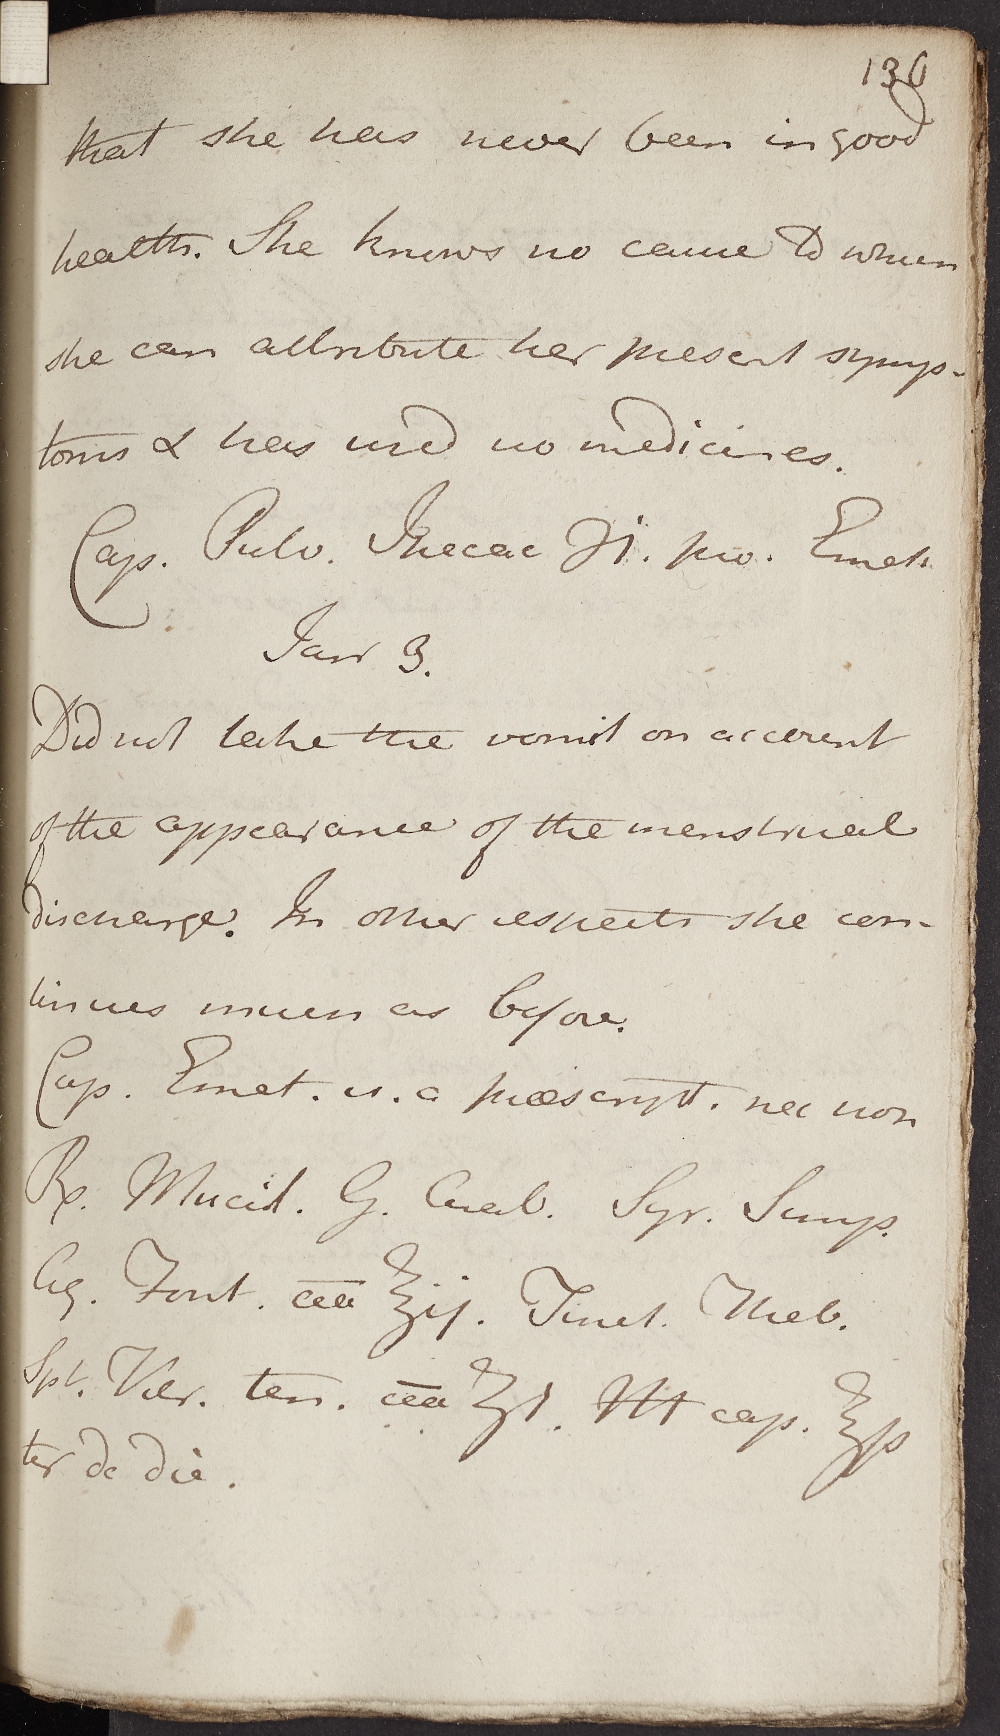 136
that she has never been in good
health. She knows no cause to which
she can attribute her present symp-
toms & has used no medicines.
Cap. Pulv. Ipecac ℈i. pro. Emet.
Jany 3.
Did not take the vomit on account
of the appearance of the menstrual
discharge. In other respects she con-
tinues much as before.
Cap. Emet. u. a præscript. nec non
℞. Mucil. G. Arab. Syr. Simp.
Aq. Font. āā ℥ij. Tinct. Theb.
Spt. Vitr. ten. āā ʒi. M cap. ℥ß
ter de die.